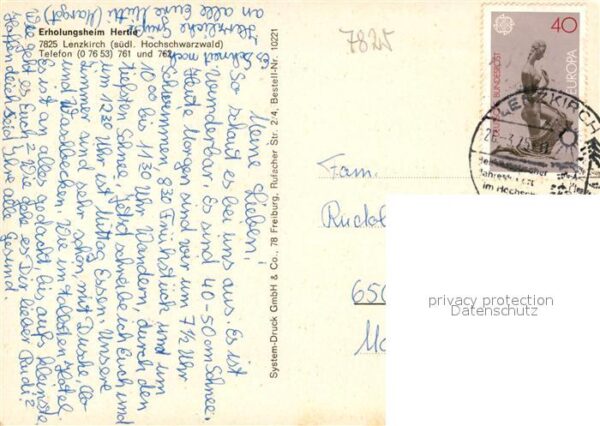 Erholungsheim Hertie
7825 Lenzkirch (südl. Hochschwarzwald)
Telefon (0 76 53) 761 und 762
Meine Lieben!
So schaut es bei uns aus. Es ist
wunderbar. Es sind 40-50 cm Schnee.
Heute Morgen sind wir um 7½ Uhr
Schwimmen 8.30 Frühstück und um
10.00 bis 11.30 Uhr Wandern, durch den
tiefsten Schnee, jetzt schreibe ich Euch und
um 12.30 Uhr ist Mittag Essen. Unsere
Zimmer sind sehr schön, mit Dusche,
und Waschbecken. Wie im tollsten Hotel.
Es ist an alles gedacht bis aufs kleinste
Wie geht es Euch? Wie geht es Dir lieber Rudi?
Hoffentlich seid Ihr alle Gesund.
Es
schmeckt noch
Herzliche Grüße
an alle Eure Mutti
(Margot)
System-Druck GmbH & Co., 78 Freiburg, Rufacher Str. 2/4, Bestell-Nr. 10221
7825
40
DEUTSCHE BUNDESPOST
EUROPA
LENZKIRCH
26.-3.75
im Hochsch
Fam.
Rudol
650
Ma
privacy protection
Datenschutz